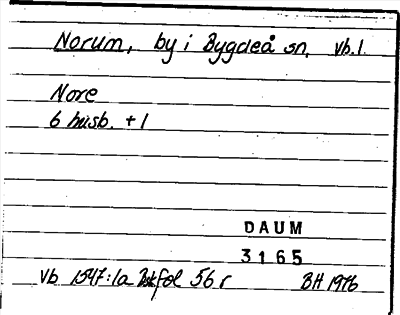 Norum, by i Bygdeå sn. vb. l.
Nore
6 husb. + 1
DAUM
3165
Vb 1547:1a fol 56 r BH 1976